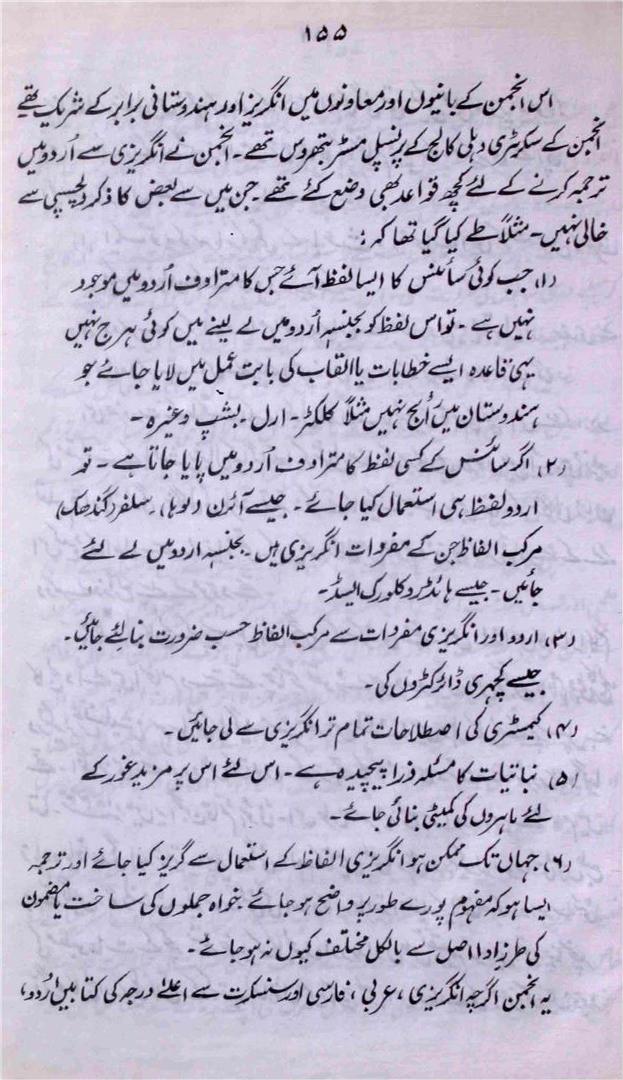 ۱۵۵
اس انجمن کے بانیوں اور معاونوں میں انگریز اور ہندوستانی برابر کے شریک تھے
انجمن کے سکرٹری دہلی کالج کے پرنسپل مسٹر بتھروس تھے۔ انجمن نے انگریزی سے اُردو میں
ترجمہ کرنے کے لئے کچھ قواعد بھی وضع کئے تھے۔ جن میں سے بعض کا ذکر دلچسپی سے
خالی نہیں۔ مثلاً طے کیا گیا تھا کہ:
(۱) جب کوئی سائنس کا ایسا لفظ آئے جس کا مترادف اُردو میں موجود
نہیں ہے۔ تو اس لفظ کو بجنسہٖ اُردو میں لے لینے میں کوئی ہرج نہیں
یہی قاعدہ ایسے خطابات یا القاب کی بابت عمل میں لایا جائے جو
ہندوستان میں رائج نہیں مثلاً کلکٹر۔ ارل۔ بشپ وغیرہ۔
(۲) اگر سائنس کے کسی لفظ کا مترادف اُردو میں پایا جاتا ہے۔ تو
اردو لفظ ہی استعمال کیا جائے۔ جیسے آئرن (لوہا)۔ سلفر (گندھک)
مرکب الفاظ جن کے مفردات انگریزی ہیں۔ بجنسہٖ اردو میں لے لئے
جائیں۔ جیسے ہائڈروکلورک ایسڈ۔
(۳) اردو اور انگریزی مفردات سے مرکب الفاظ حسب ضرورت بنا لئے جائیں۔
جیسے کچہری ڈائرکٹروں کی۔
(۴) کیمسٹری کی اصطلاحات تمام تر انگریزی سے لی جائیں۔
(۵) نباتیات کا مسئلہ ذرا پیچیدہ ہے۔ اس لئے اس پر مزید غور کے
لئے ماہروں کی کمیٹی بنائی جائے۔
(۶) جہاں تک ممکن ہو انگریزی الفاظ کے استعمال سے گریز کیا جائے اور ترجمہ
ایسا ہو کہ مفہوم پورے طور پر واضح ہو جائے خواہ جملوں کی ساخت یا مضمون
کی طرزِ ادا اصل سے بالکل مختلف کیوں نہ ہو جائے۔
یہ انجمن اگرچہ انگریزی، عربی، فارسی اور سنسکرت سے اعلےٰ درجہ کی کتابیں اُردو،